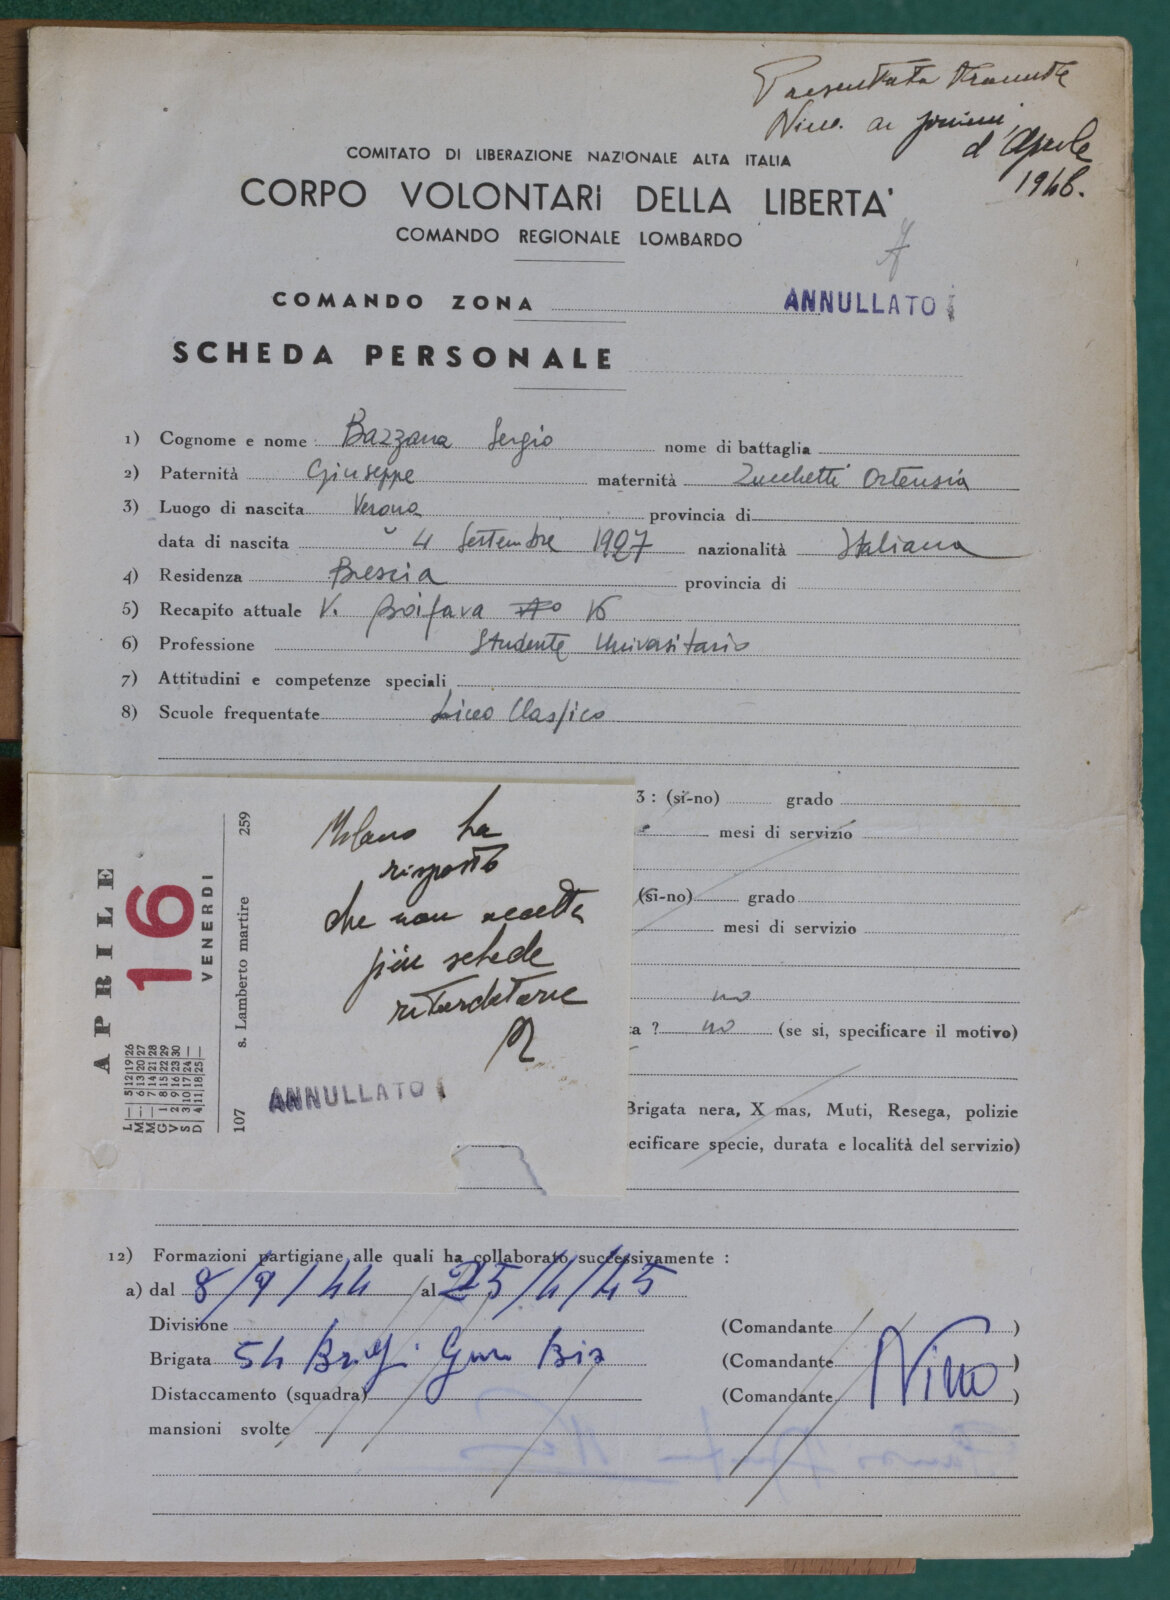 Presentata tramite
Nino. ai primi
d'Aprile
1948.
COMITATO DI LIBERAZIONE NAZIONALE ALTA ITALIA
CORPO VOLONTARI DELLA LIBERTA'
COMANDO REGIONALE LOMBARDO
COMANDO ZONA
ANNULLATO
SCHEDA PERSONALE
1) Cognome e nome Bazzana Sergio nome di battaglia
2) Paternità Giuseppe maternità Zucchetti Ortensia
3) Luogo di nascita Verona provincia di
data di nascita 4 Settembre 1927 nazionalità Italiana
4) Residenza Brescia provincia di
5) Recapito attuale V. Boifava 16
6) Professione Studente Universitario
7) Attitudini e competenze speciali
8) Scuole frequentate Liceo Classico
3 : (si-no) grado
mesi di servizio
(si-no) grado
mesi di servizio
no
a ? no (se si, specificare il motivo)
Brigata nera, X mas, Muti, Resega, polizie
ecificare specie, durata e località del servizio)
APRILE
16
VENERDI
L — 5 12 19 26
M — 6 13 20 27
M — 7 14 21 28
G 1 8 15 22 29
V 2 9 16 23 30
S 3 10 17 24 —
D 4 11 18 25 —
107 s. Lamberto martire 259
Milano ha
risposto
che non accetta
più schede
ritardatarie
ANNULLATO
12) Formazioni partigiane alle quali ha collaborato successivamente :
a) dal 8/9/44 al 25/4/45
Divisione (Comandante )
Brigata 54 (Comandante Nino )
Distaccamento (squadra) (Comandante )
mansioni svolte